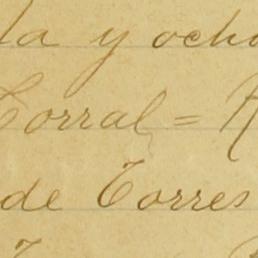 la y ocho
Corral =
de Torres